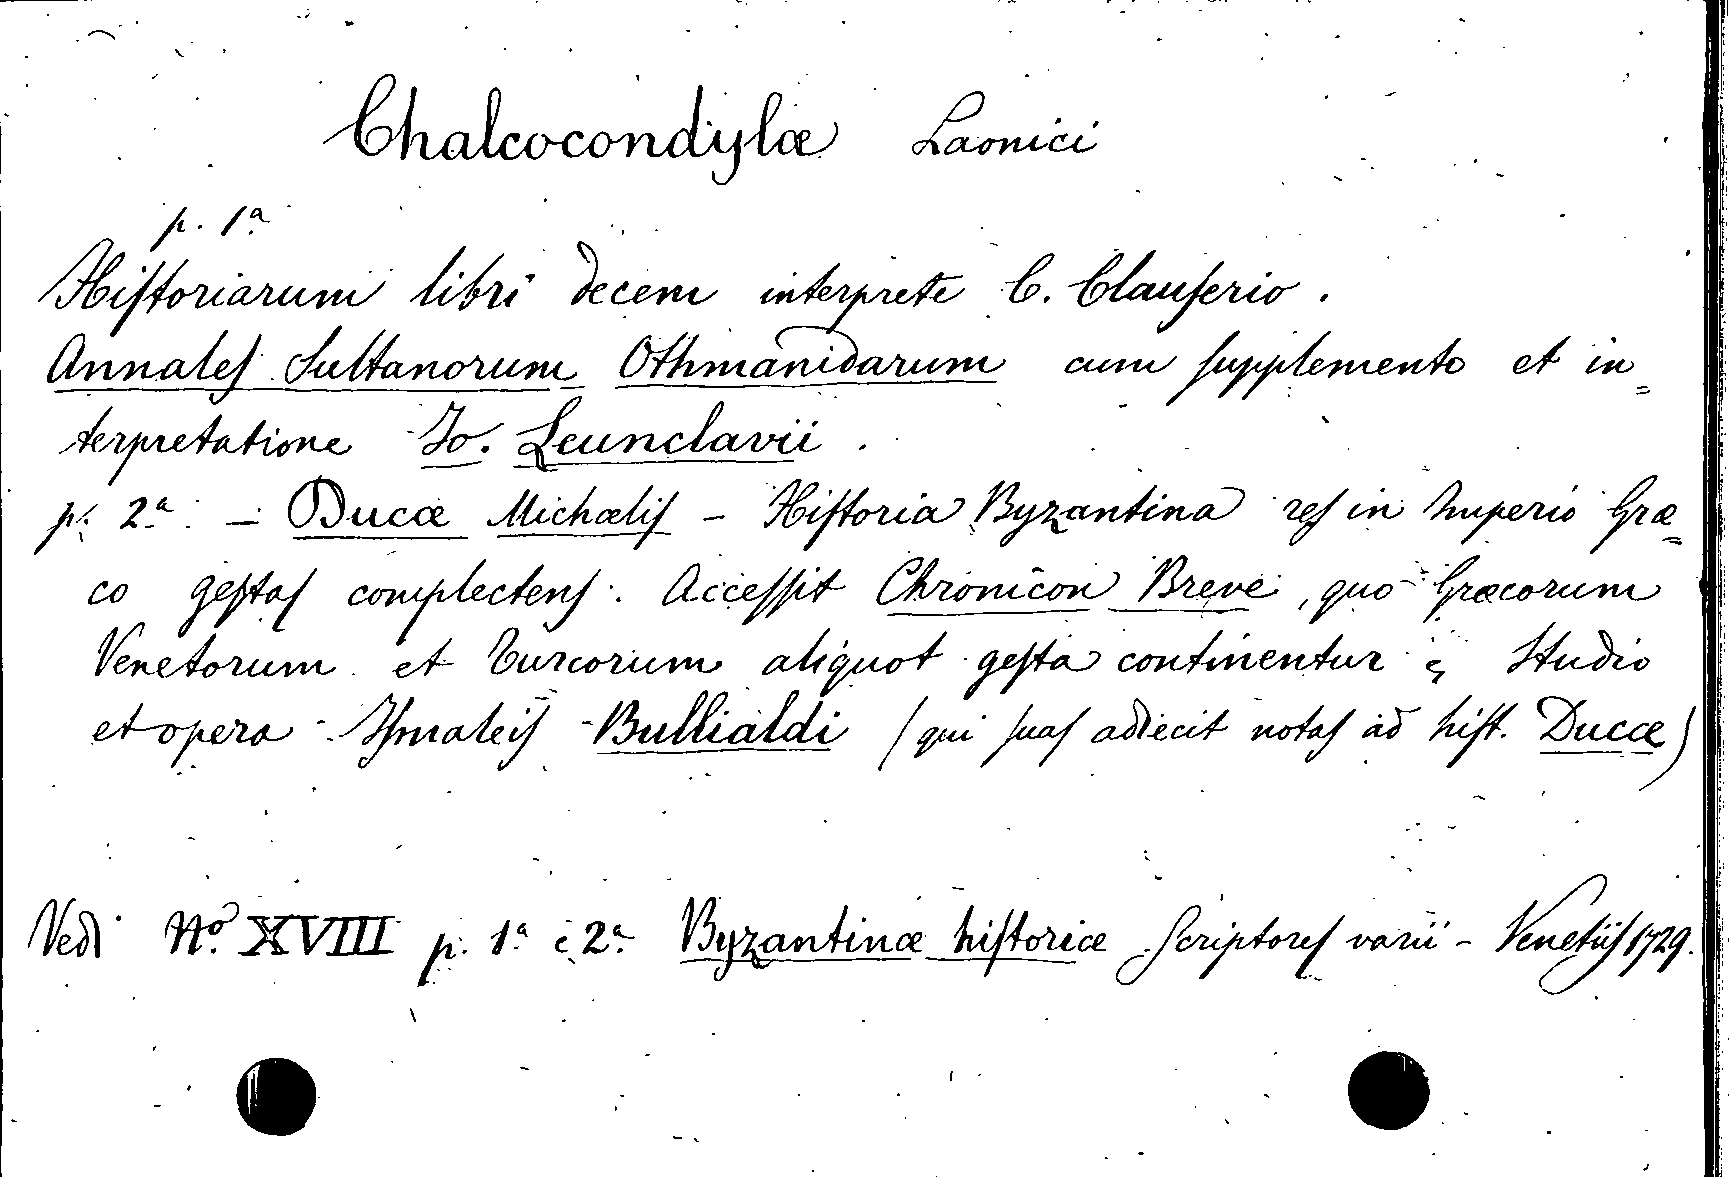 Chalcocondylæ Laonici
p. 1ª
Historiarum libri decem interprete C. Clauserio.
Annales Sultanorum Othmanidarum cum supplemento et in=
terpretatione Jo. Leunclavii.
p. 2ª. – Ducæ Michælis – Historia Byzantina res in Imperio Græ=
co gestas complectens. Accessit Chronicon Breve, quo Græcorum
Venetorum et Turcorum aliquot gesta continentur; Studio
et opera Ismaleis Bullialdi (qui suas adiecit notas ad hist. Ducæ)
Vedi Nº. XVIII p. 1ª e 2ª Byzantinæ historiæ Scriptores varii – Venetiis 1729.